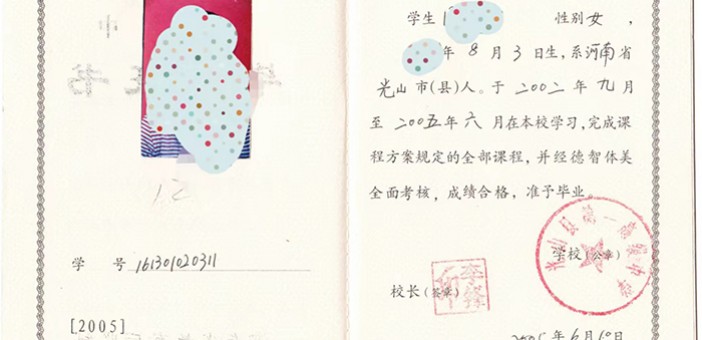 学 号 16130102031
[2005]
学生 性别 女 ,
年 8 月 3 日生, 系河南省
光山 市(县)人。于 二〇〇二 年 九 月
至 二〇〇五 年 六 月在本校学习,完成课
程方案规定的全部课程,并经德智体美
全面考核,成绩合格,准予毕业。
学校(公章)
校长(签章)
2005 年 6 月 10 日